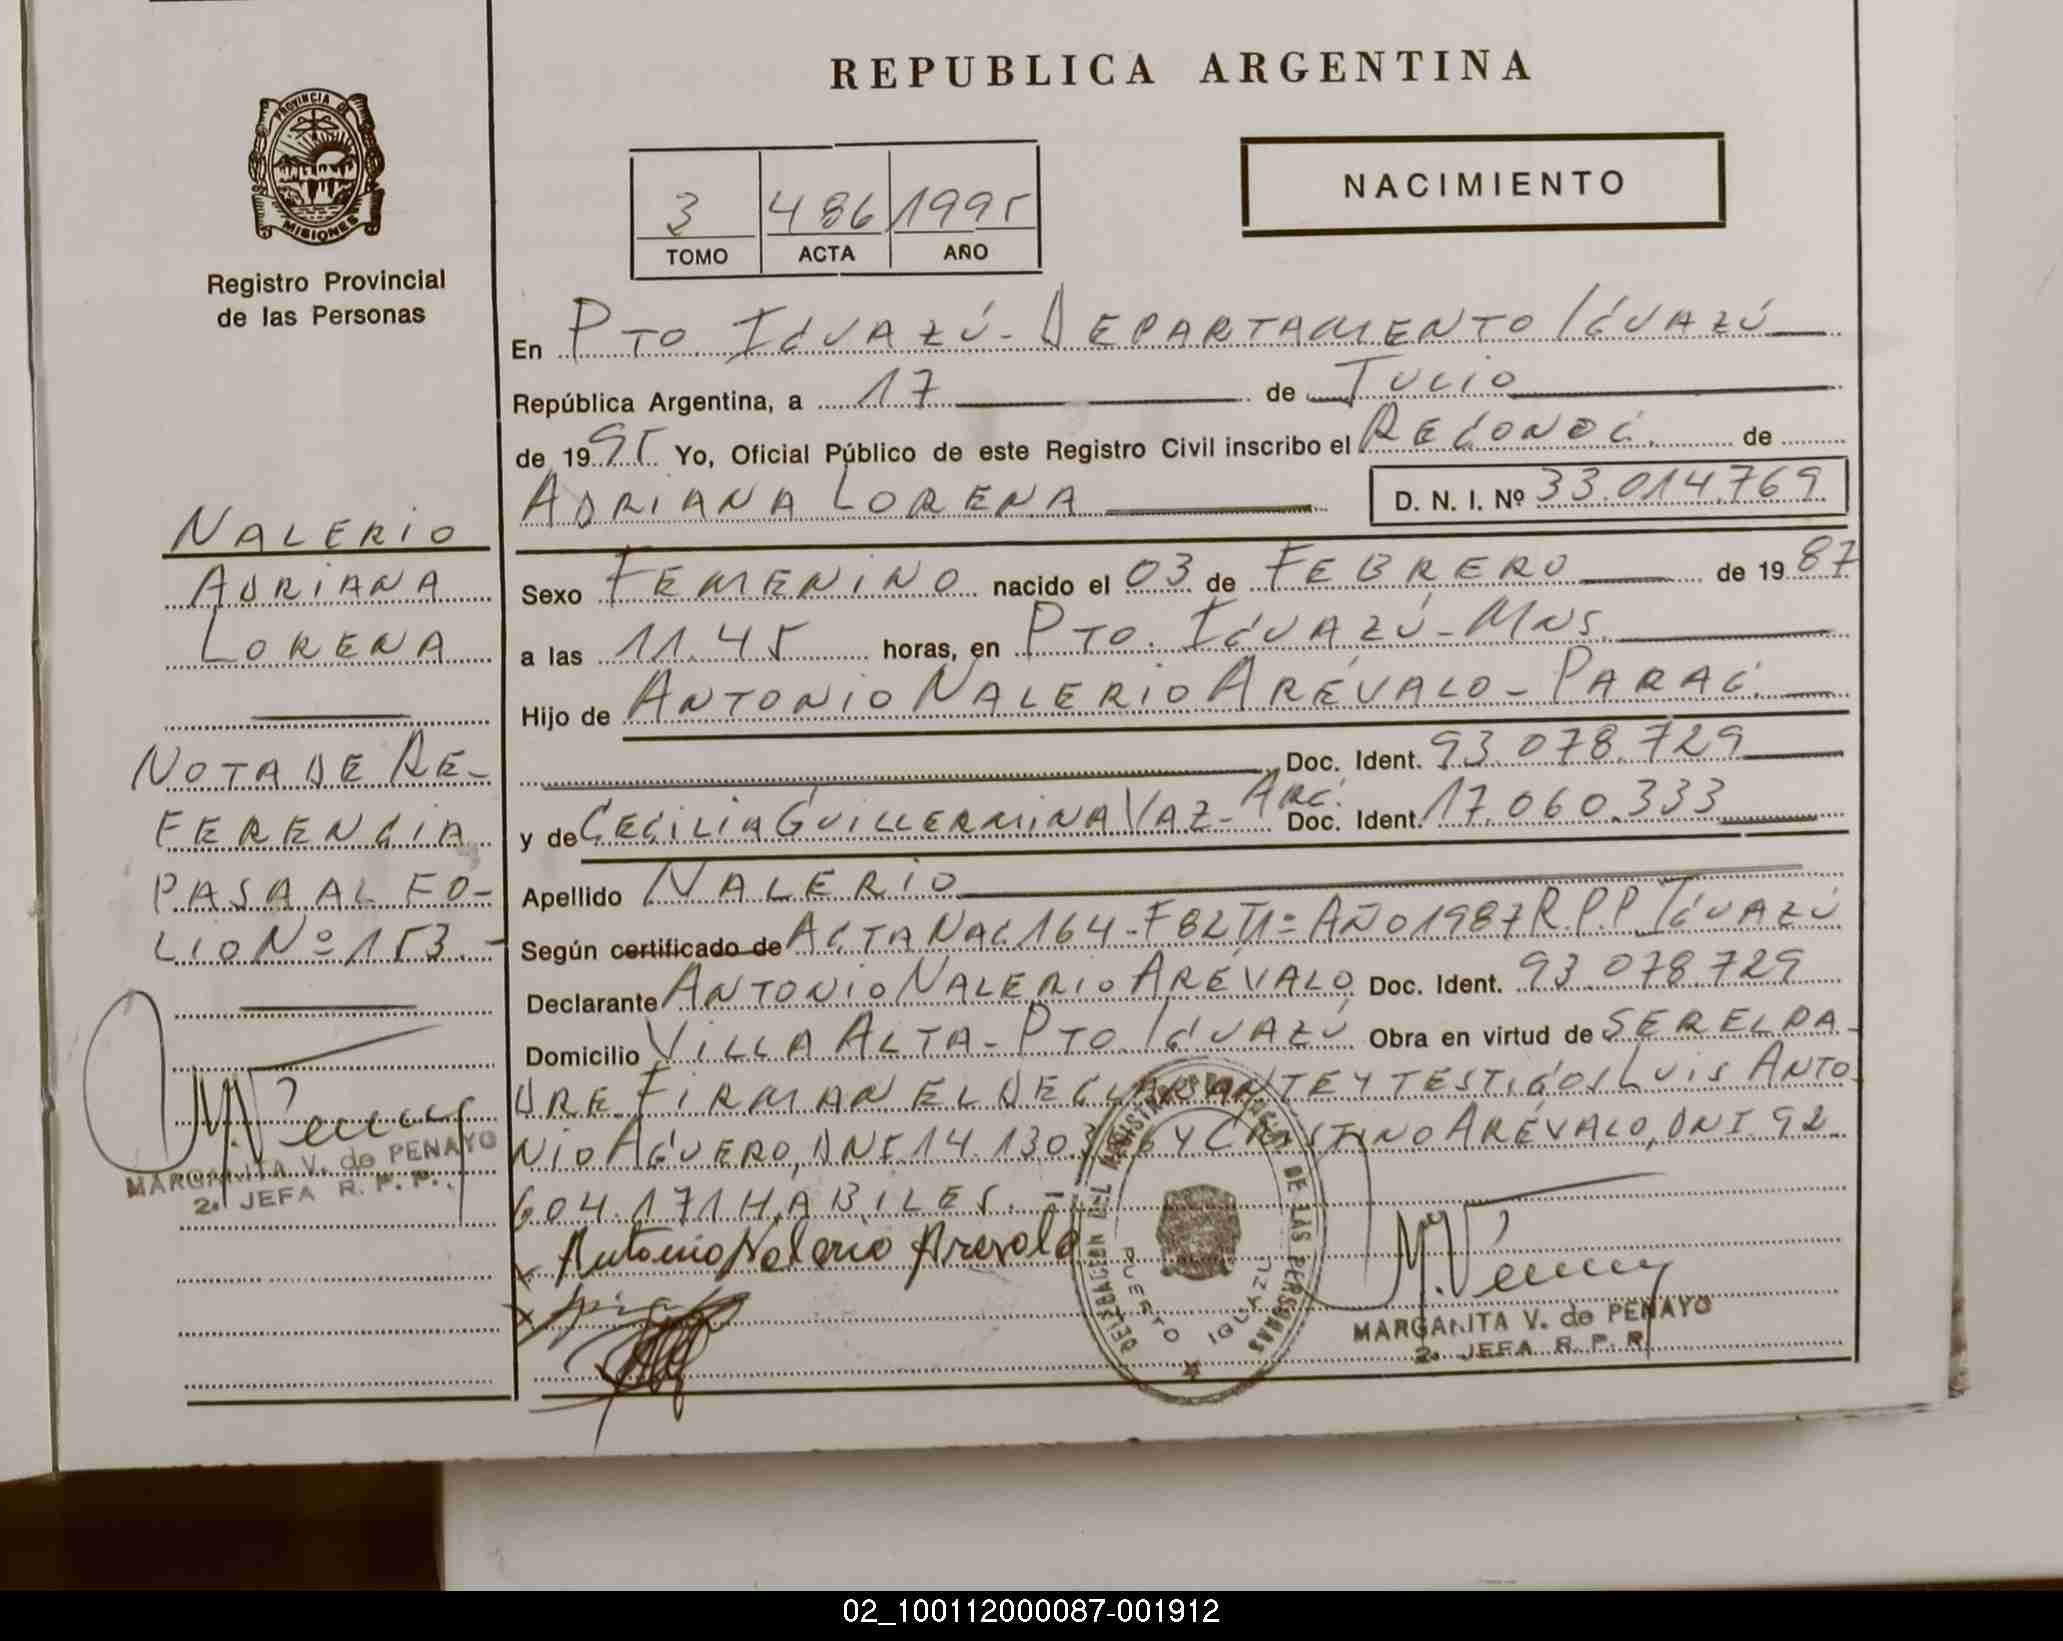 REPUBLICA ARGENTINA
PROVINCIA DE
MISIONES
Registro Provincial
de las Personas
3 486 1995
TOMO ACTA AÑO
NACIMIENTO
En PTO. IGUAZÚ - DEPARTAMENTO IGUAZÚ
República Argentina, a 17 de JULIO
de 1995 Yo, Oficial Público de este Registro Civil inscribo el RECONOC. de
ADRIANA LORENA D. N. I. Nº 33.014.769
Sexo FEMENINO nacido el 03 de FEBRERO de 1987
a las 11.45 horas, en PTO. IGUAZÚ - MNS.
Hijo de ANTONIO NALERIO ARÉVALO - PARAG.
Doc. Ident. 93.078.729
y de CECILIA GUILLERMINA VAZ - ARG. Doc. Ident. 17.060.333
Apellido NALERIO
Según certificado de ACTA NAC 164 - F 82 T1= AÑO 1987 R.P.P. IGUAZÚ
Declarante ANTONIO NALERIO ARÉVALO Doc. Ident. 93.078.729
Domicilio VILLA ALTA - PTO. IGUAZÚ Obra en virtud de SER EL PA-
DRE. FIRMAN EL DECLARANTE Y TESTIGOS LUIS ANTO-
NIO AGÜERO, DNI. 14.130. Y CRISTINO ARÉVALO, DNI. 92.
604.171 HABILES.
Antonio Nalerio Arevalo
NALERIO
ADRIANA
LORENA
NOTA DE RE-
FERENCIA
PASA AL FO-
LIO Nº 153.-
MARGARITA V. de PENAYO
2a. JEFA R. P. P.
REGISTRO DE LAS PERSONAS
PUERTO IGUAZU
MARGARITA V. de PENAYO
2a. JEFA R. P. P.
02_100112000087-001912